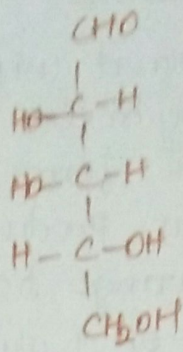 CHO
HO-C-H
HO-C-H
H-C-OH
CH2OH